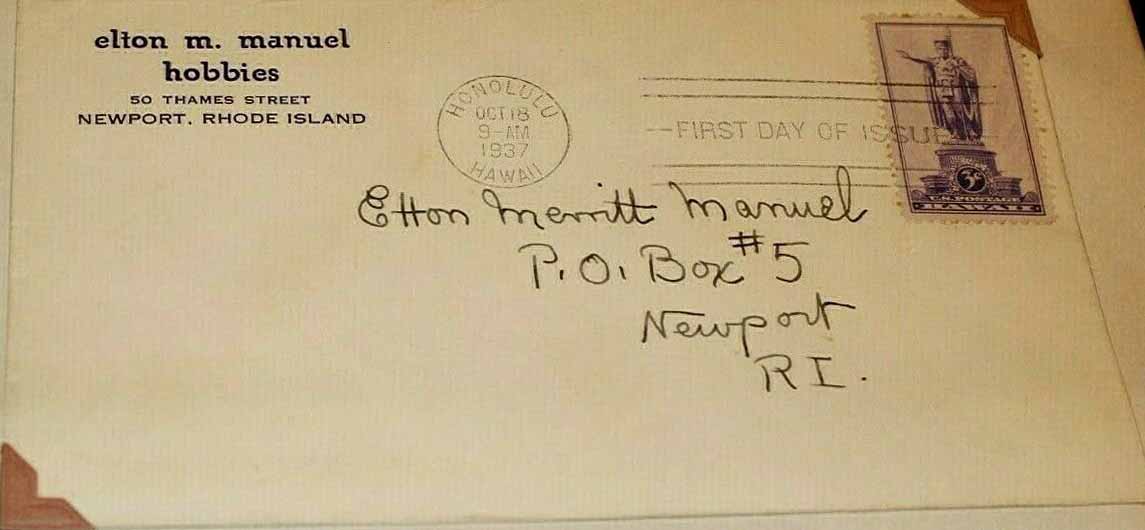 elton m. manuel
hobbies
50 THAMES STREET
NEWPORT, RHODE ISLAND
HONOLULU
OCT 18
9-AM
1937
HAWAII
FIRST DAY OF ISSUE
3¢
U.S. POSTAGE
HAWAII
Elton Merritt Manuel
P.O. Box #5
Newport
RI.